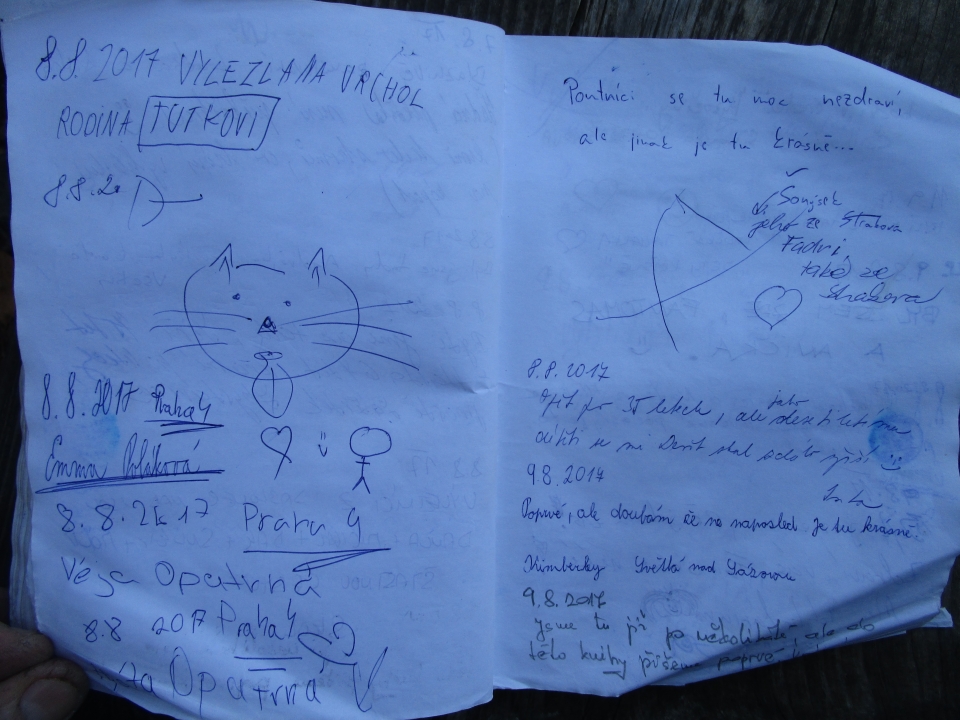 8.8. 2017 VYLEZLA NA VRCHOL
RODINA TUTKOVI
8.8.20
8.8.2017 Praha 4
Emma
8.8.2k17 Praha 4
Opatrná
8.8 2017 Praha 4
Opatrná
Poutníci se tu moc nezdraví,
ale jinak je tu krásně...
ze Strahova
Fadri,
také ze
Strahova
8.8.2017
Opět po 35 letech, ale jako deseti
9.8.2017
Poprvé, ale doufám že ne naposled. je tu krásně
Kimberky Světlá nad Sázavou
9.8.2017
Jsme tu již po několikáté, ale do
této knihy píšeme poprvé